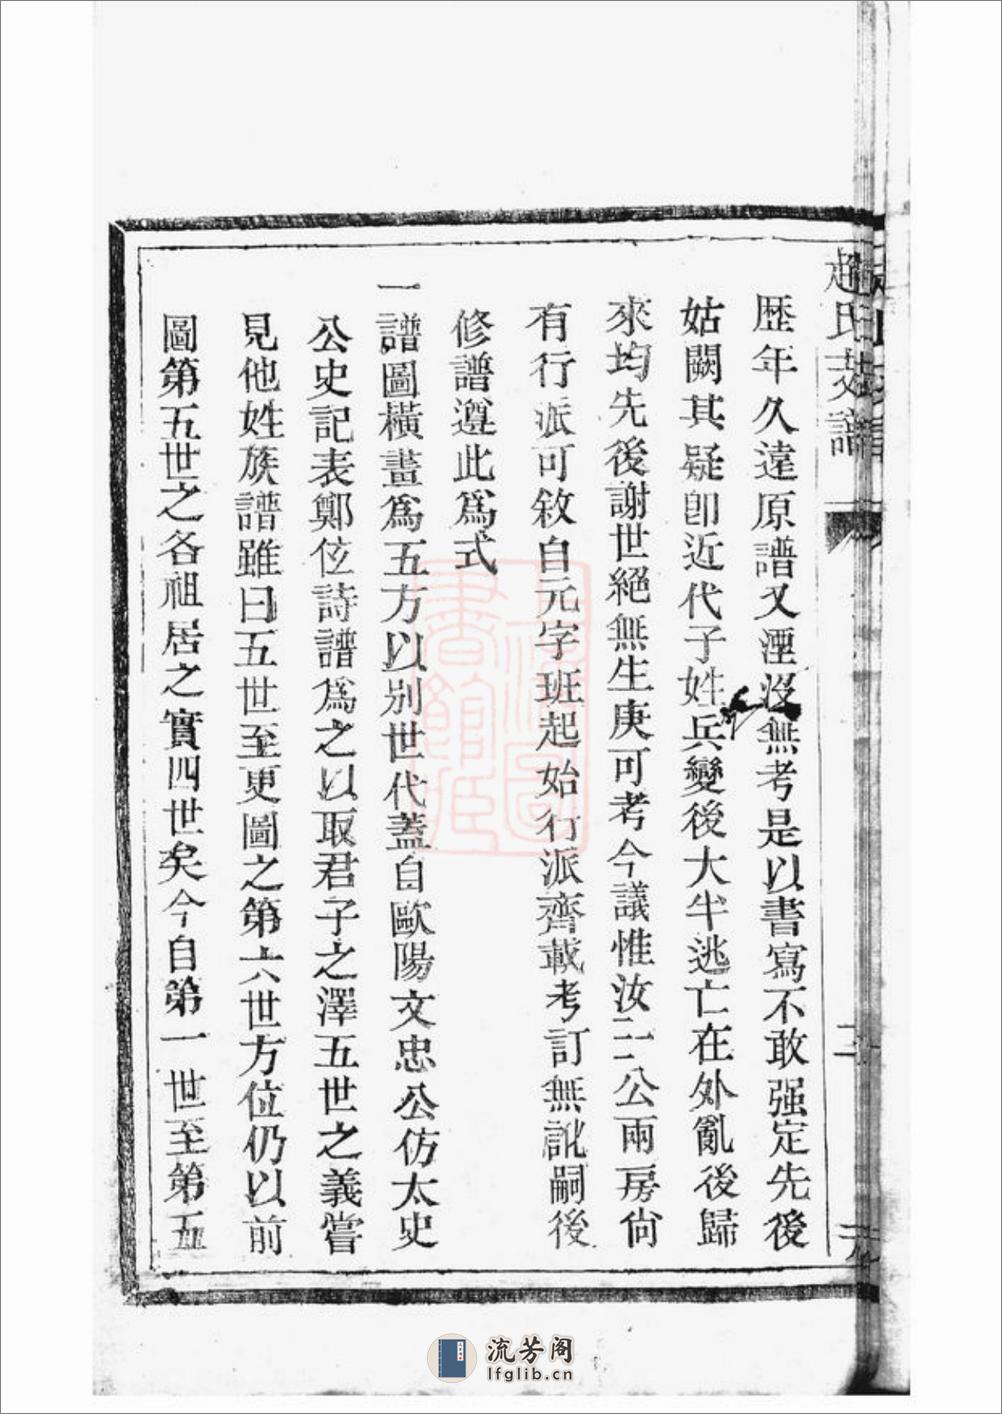 趙氏支譜
歷年久遠原譜又湮沒無考是以書寫不敢强定先後
姑闕其疑卽近代子姓兵變後大半逃亡在外亂後歸
來均先後謝世絕無生庚可考今議惟汝二公兩房尙
有行派可敘自元字班起始行派齊載考訂無訛嗣後
修譜遵此爲式
一譜圖橫畫爲五方以別世代蓋自歐陽文忠公仿太史
公史記表鄭位詩譜爲之以取君子之澤五世之義嘗
見他姓族譜雖曰五世至更圖之第六世方位仍以前
圖第五世之各祖居之實四世矣今自第一世至第五
流芳阁
lfglib.cn